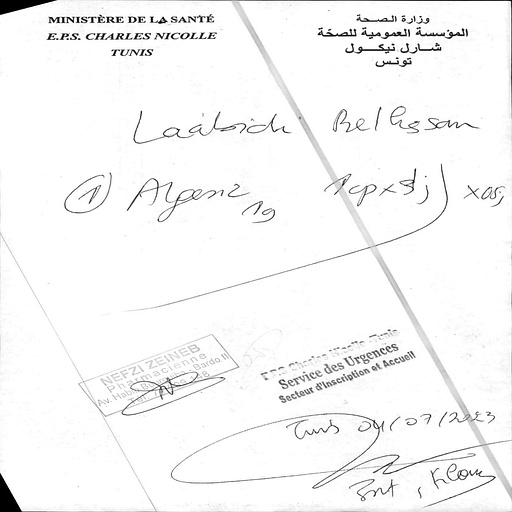 MINISTÈRE DE LA SANTÉ
E.P.S. CHARLES NICOLLE
TUNIS
وزارة الـصـحـة
المؤسسة العمومية للصحّة
شــارل نيكــول
تونـس
Laâbidi Belhssan
① Algesic 1g 1cp x 3/j x 05j
NEFZI ZEINEB
Pharmacienne
Av. Habib Bardo II
E.P.S Charles Nicolle -Tunis
Service des Urgences
Secteur d'Inscription et Accueil
Tunis 04/07/2023